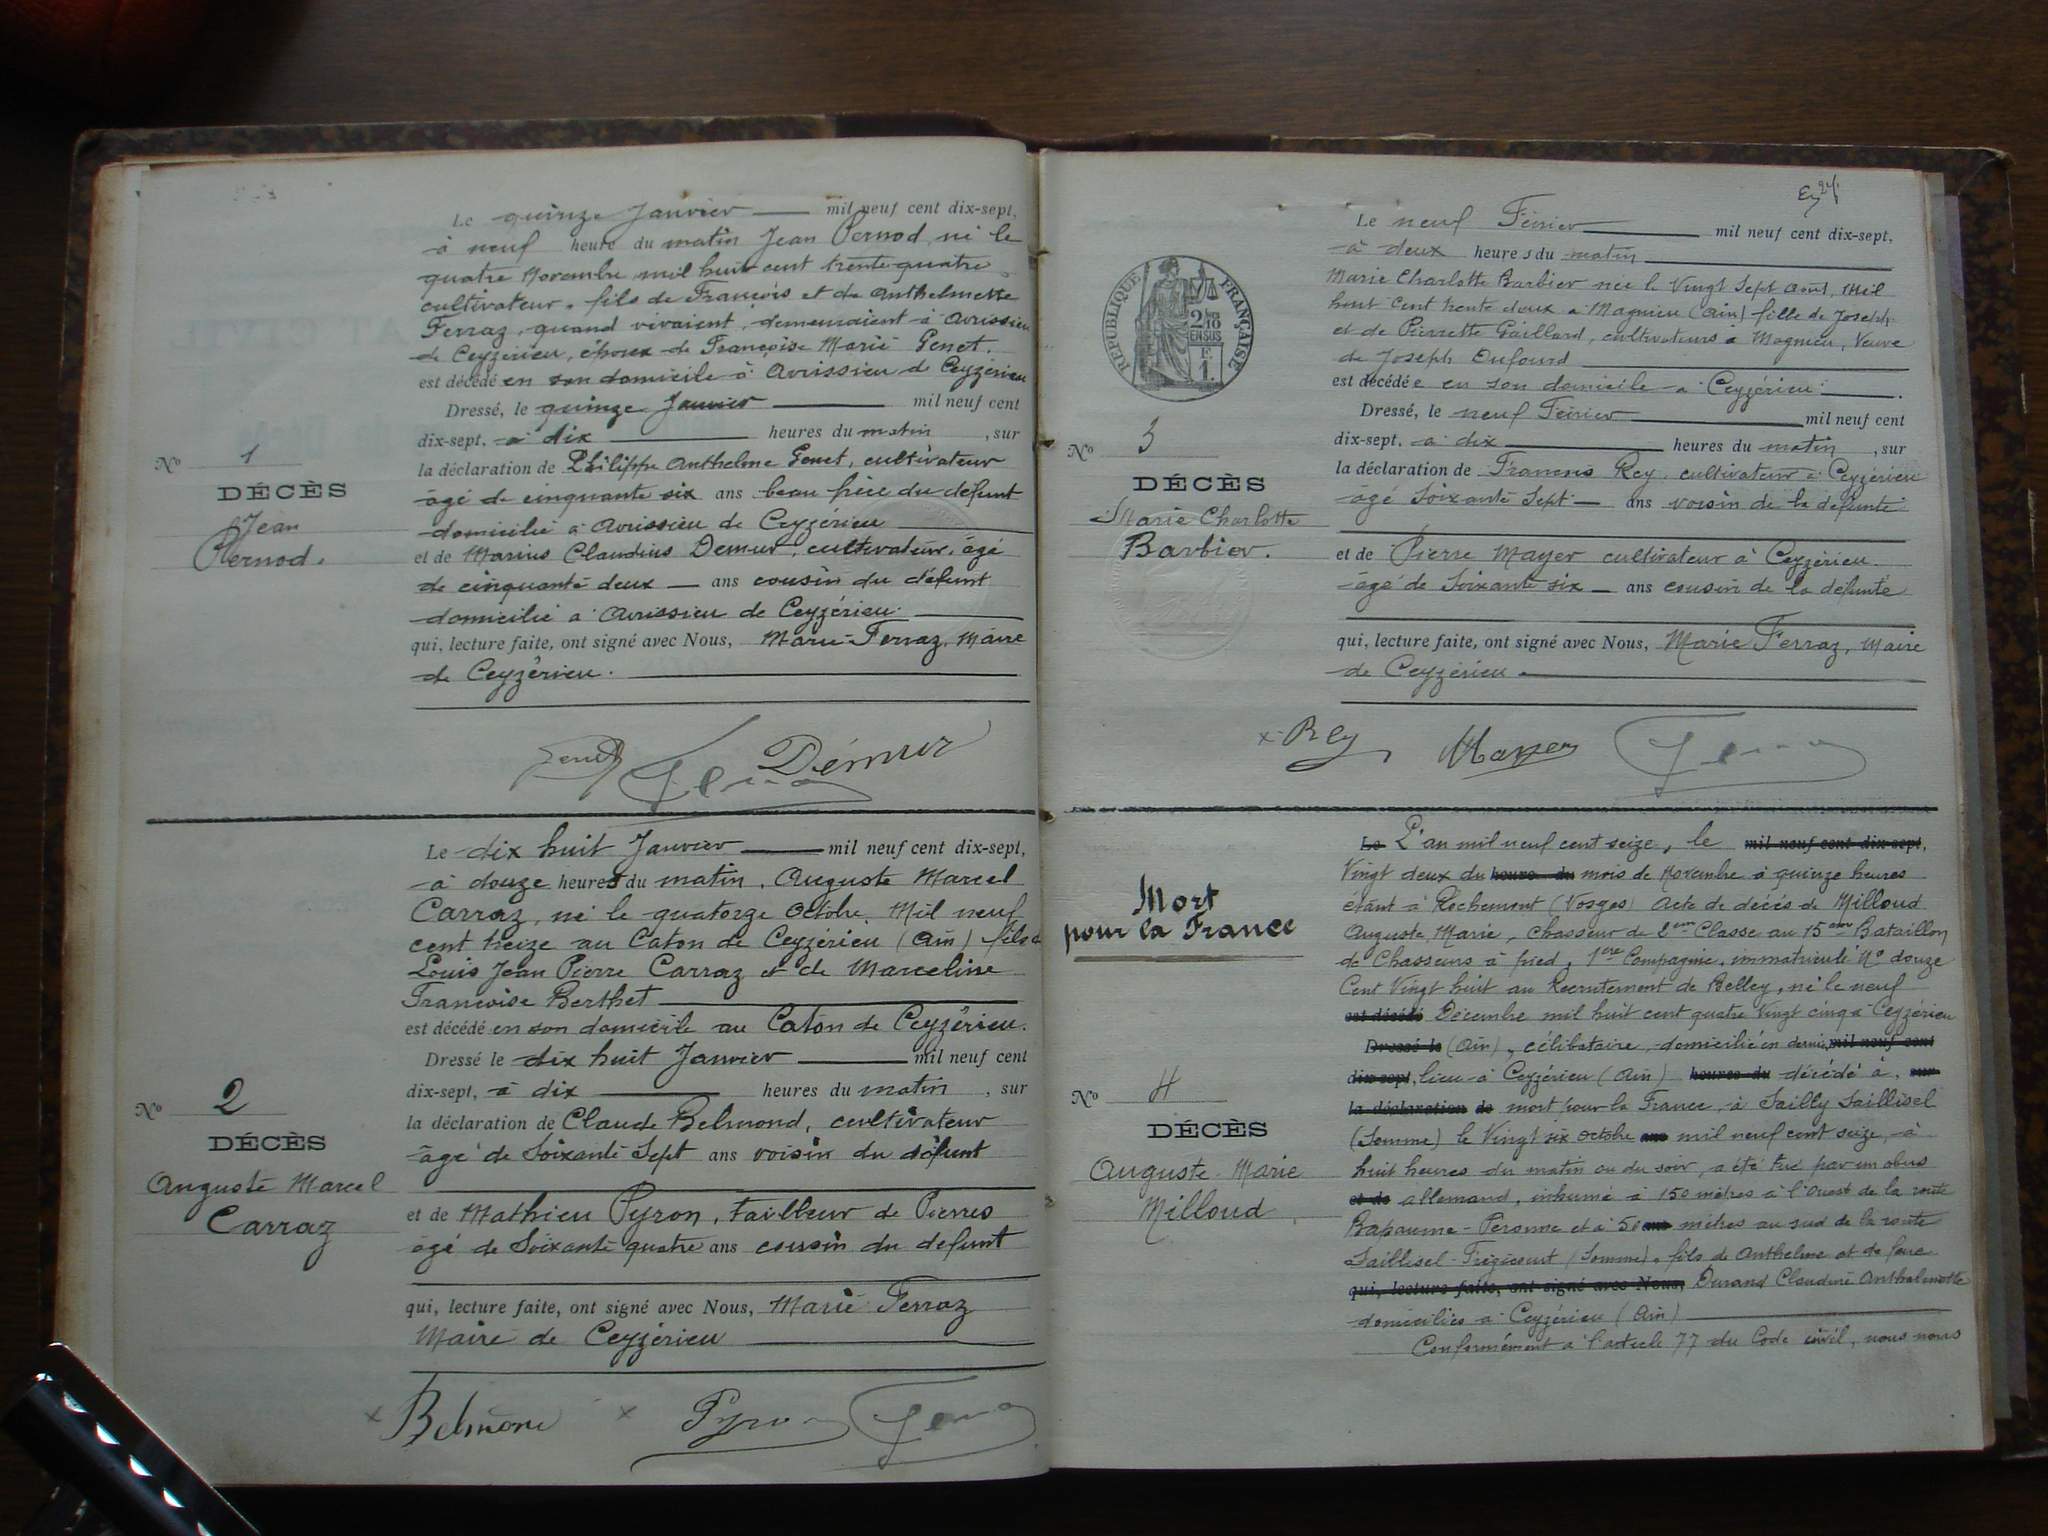 Le quinze Janvier mil neuf cent dix-sept,
à neuf heure du matin Jean Pernod, né le
quatre Novembre mil huit cent trente quatre
cultivateur, fils de François et de Anthelmette
Ferraz, quand vivaient, demeuraient à Avrissieu
de Ceyzérieu, époux de Françoise Marie Genet.
est décédé en son domicile à Avrissieu de Ceyzérieu
Dressé, le quinze Janvier mil neuf cent
dix-sept, à dix heures du matin, sur
la déclaration de Philippe Anthelme Genet, cultivateur
âgé de cinquante six ans beau frère du défunt
domicilié à Avrissieu de Ceyzérieu
et de Marius Claudius Demur, cultivateur, âgé
de cinquante deux ans cousin du défunt
domicilié à Avrissieu de Ceyzérieu.
qui, lecture faite, ont signé avec Nous, Marie Ferraz, Maire
de Ceyzérieu.
No 1
DÉCÈS
Jean
Pernod.
Genet Ferraz Démur
Le dix huit Janvier mil neuf cent dix-sept,
à douze heures du matin, Auguste Marcel
Carraz, né le quatorze Octobre Mil neuf
cent treize au Caton de Ceyzérieu (Ain) fils de
Louis Jean Pierre Carraz et de Marceline
Francoise Berthet
est décédé en son domicile au Caton de Ceyzérieu.
Dressé le dix huit Janvier mil neuf cent
dix-sept, à dix heures du matin, sur
la déclaration de Claude Belmond, cultivateur
âgé de Soixante Sept ans voisin du défunt
et de Mathieu Pyron, tailleur de Pierres
âgé de Soixante quatre ans cousin du défunt
qui, lecture faite, ont signé avec Nous, Marie Ferraz
Maire de Ceyzérieu
No 2
DÉCÈS
Auguste Marcel
Carraz
x Belmond x Pyron Ferraz
RÉPUBLIQUE FRANÇAISE
2/10
EN SUS
F.
1.
Le neuf Février mil neuf cent dix-sept,
à deux heures du matin
Marie Charlotte Barbier née le Vingt Sept Août, Mil
huit Cent trente deux à Magnieu (Ain) fille de Joseph
et de Pierrette Gaillard, cultivateurs à Magnieu, Veuve
de Joseph Dufourd
est décédée en son domicile à Ceyzérieu.
Dressé, le neuf Février mil neuf cent
dix-sept, à dix heures du matin, sur
la déclaration de François Rey, cultivateur à Ceyzérieu
âgé Soixante Sept ans voisin de la défunte
et de Pierre Mayer cultivateur à Ceyzérieu.
âgé de Soixante six ans cousin de la défunte
qui, lecture faite, ont signé avec Nous, Marie Ferraz, Maire
de Ceyzérieu
No 3
DÉCÈS
Marie Charlotte
Barbier.
x Rey Mayer Ferraz
Le L'an mil neuf cent seize, le mil neuf cent dix-sept,
Vingt deux du heure du mois de Novembre à quinze heures
étant à Rochemont (Vosges) Acte de décès de Milloud
Auguste, Marie, Chasseur de 2eme Classe au 15eme Bataillon
de Chasseurs à pied, 1ere Compagnie, immatriculé No douze
Cent Vingt huit au Recrutement de Belley, né le neuf
est décédé Décembre mil huit cent quatre Vingt cinq à Ceyzérieu
Dressé le (Ain), célibataire, domicilié en dernier mil neuf cent
dix-sept, lieu à Ceyzérieu (Ain) heures du décédé à, sur
la déclaration de mort pour la France, à Sailly Saillisel
(Somme) le Vingt six Octobre ans mil neuf cent seize, à
huit heures du matin ou du soir, a été tué par un obus
et de allemand, inhumé à 150 mètres à l'Ouest de la route
Bapaume-Péronne et à 50 ans mètres au sud de la route
Saillisel- (Somme), fils de Anthelme et de feue
qui, lecture faite, ont signé avec Nous, Durand Claudine Anthelmette
domiciliés à Ceyzérieu (Ain)
Conformément à l'article 77 du Code civil, nous nous
Mort
pour la France
No 4
DÉCÈS
Auguste Marie
Milloud